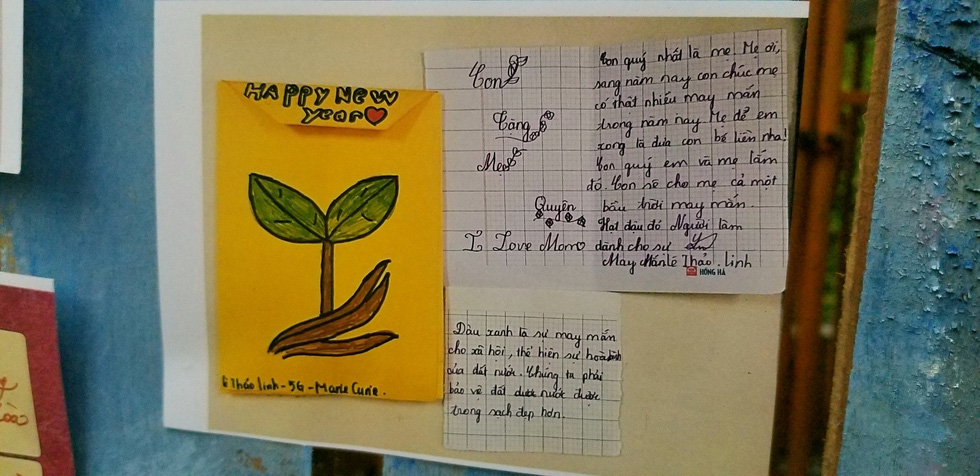 HAPPY NEW
YEAR
Lê Thảo Linh - 5G - Marie Curie.
Con
Tặng
Mẹ
Quyên
I Love Mom
Con quý nhất là mẹ. Mẹ ơi,
sang năm nay con chúc mẹ
có thật nhiều may mắn
trong năm nay. Mẹ để em
xong là đưa con bế liền nha!
Con quý em và mẹ lắm
đó. Con sẽ cho mẹ cả một
bầu trời may mắn.
Hạt đậu đó Người làm
dành cho sự
May Mắn Lê Thảo Linh
HỒNG HÀ
Đậu xanh là sự may mắn
cho xã hội, thể hiện sự
của đất nước. Chúng ta phải
bảo vệ đất nước được
trong sạch đẹp hơn.